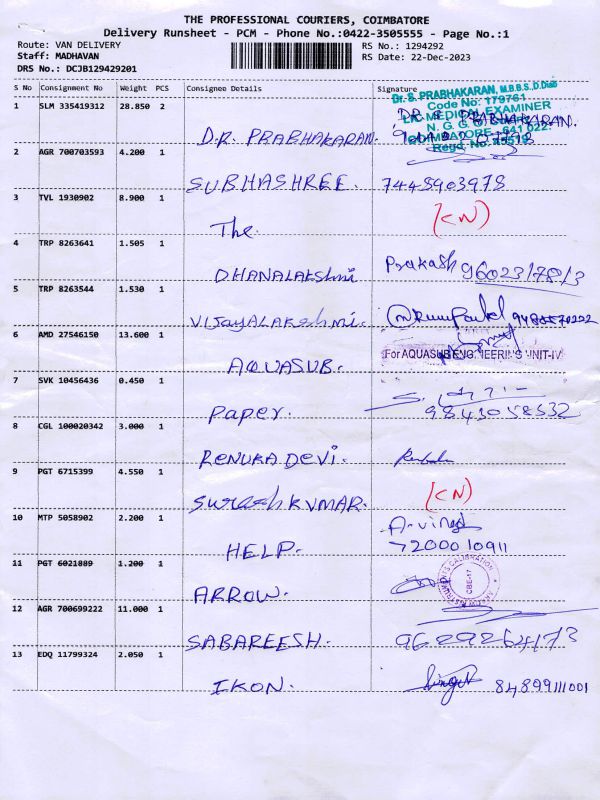 THE PROFESSIONAL COURIERS, COIMBATORE
Delivery Runsheet - PCM - Phone No.:0422-3505555 - Page No.:1
Route: VAN DELIVERY
Staff: MADHAVAN
DRS No.: DCJB129429201
RS No.: 1294292
RS Date: 22-Dec-2023
S No Consignment No Weight PCS Consignee Details Signature
1 SLM 335419312 28.850 2
Dr. S. PRABHAKARAN, M.B.B.S.,D.Diab
Code No: 179761
LIC MEDICAL EXAMINER
COIMBATORE - 641 022.
D.R. PRABHAKARAN.
DR S PRABHAKARAN.
2 AGR 700703593 4.200 1
SUBHASHREE. 7448903978
3 TVL 1930902 8.900 1
The. (CN)
4 TRP 8263641 1.505 1
DHANALAKshmi Prakash 9602317813
5 TRP 8263544 1.530 1
VIJAYALAKshmi.
6 AMD 27546150 13.600 1
AQUASUB.
For AQUASUB ENGINEERING UNIT-IV
7 SVK 10456436 0.450 1
Paper. 9843058532
8 CGL 100020342 3.000 1
RENUKA DEVi.
9 PGT 6715399 4.550 1
Suresh KVMAR. (CN)
10 MTP 5058902 2.200 1
HELP. 7200010911
11 PGT 6021889 1.200 1
ARROW.
CALIBRATION
CBE-
12 AGR 700699222 11.000 1
SABAREESH. 9629264173
13 EDQ 11799324 2.050 1
IKON. 84899111001